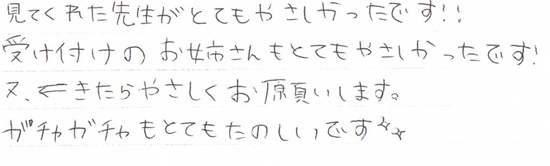 見てくれた先生がとてもやさしかったです!!
受け付けのお姉さんもとてもやさしかったです!
又、←きたらやさしくお願いします。
ガチャガチャもとてもたのしいです☆☆